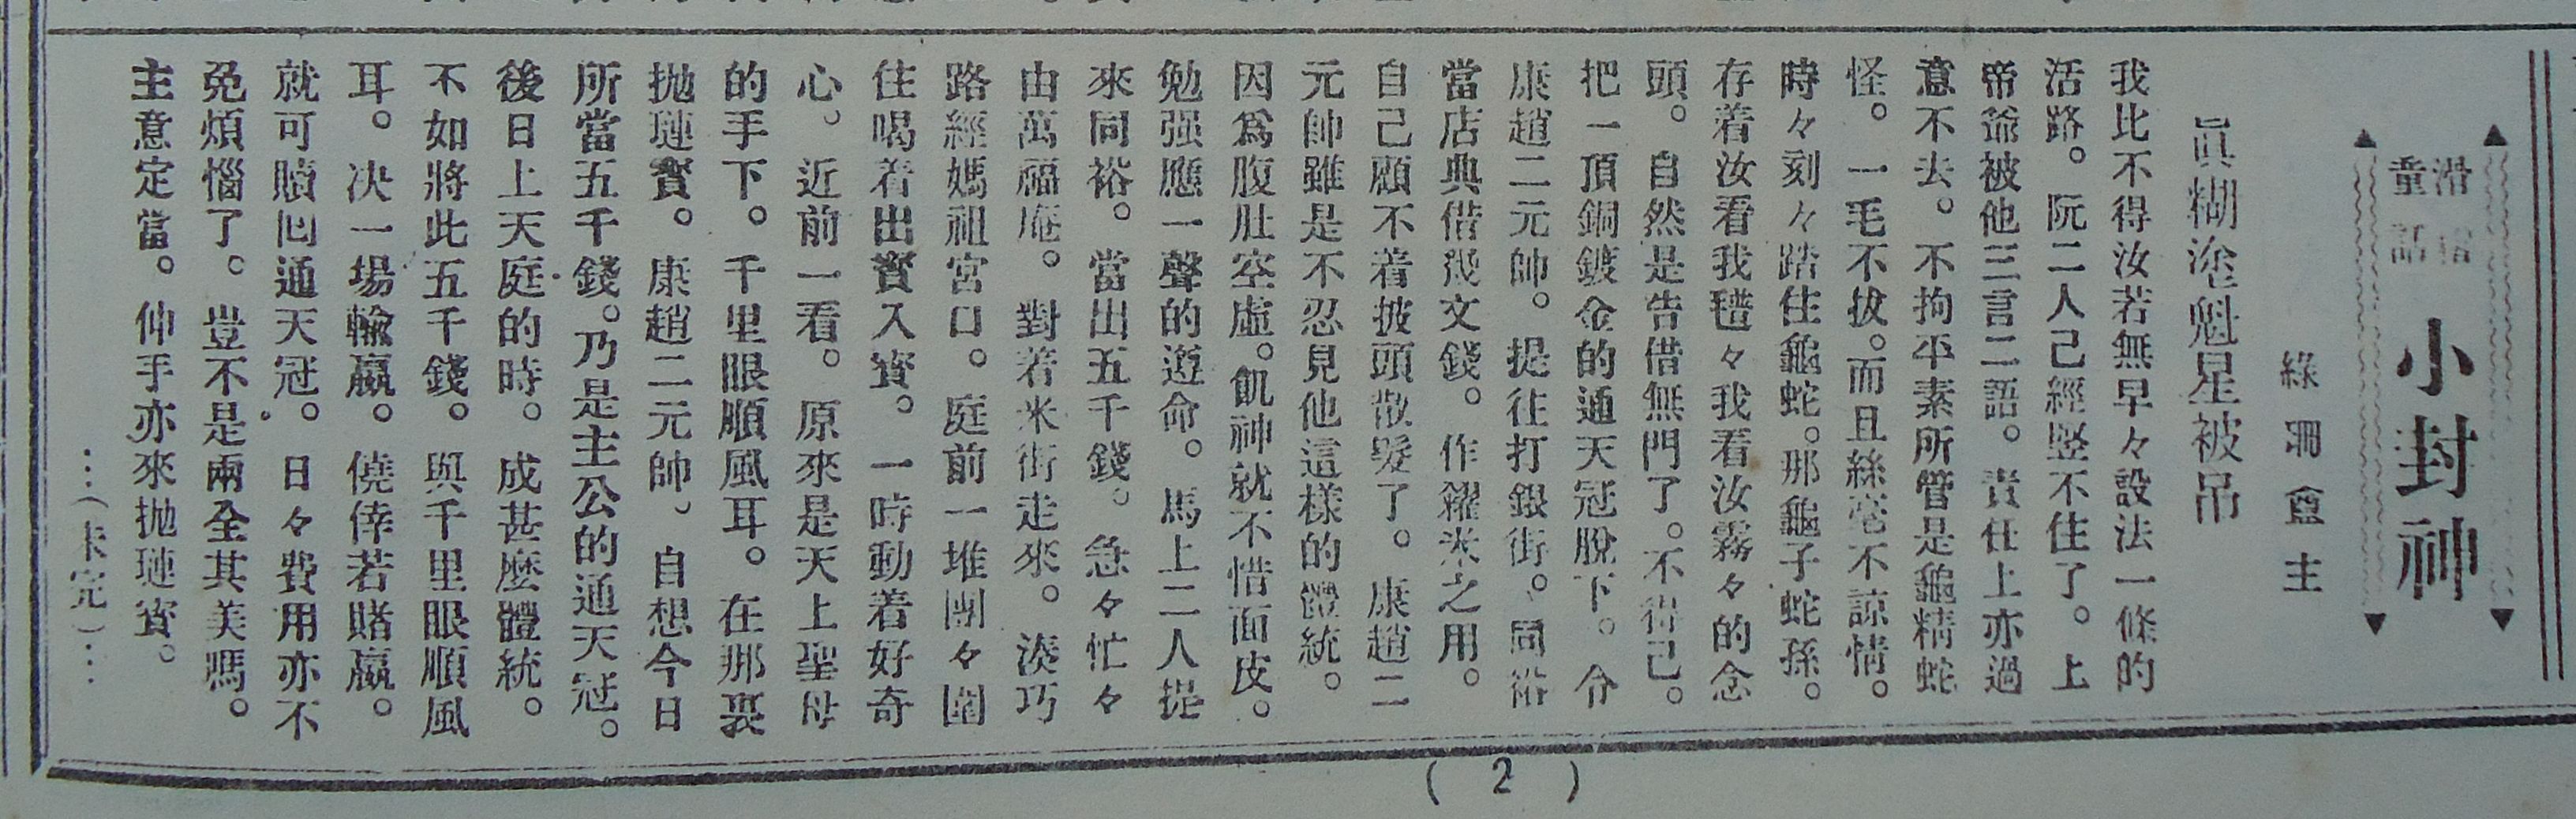 滑稽
童話
小封神
綠珊盦主
眞糊塗魁星被吊
我比不得汝若無早々設法一條的
活路。阮二人己經竪不住了。上
帝爺被他三言二語。責任上亦過
意不去。不拘平素所管是龜精蛇
怪。一毛不拔。而且絲毫不諒情。
時々刻々踏住龜蛇。那龜子蛇孫。
存着汝看我䆀々我看汝霧々的念
頭。自然是告借無門了。不得己。
把一頂銅鍍金的通天冠脫下。令
康趙二元帥。提往打銀街。同裕
當店典借幾文錢。作糴米之用。
自己顧不着披頭散髮了。康趙二
元帥雖是不忍見他這樣的體統。
因爲腹肚空虛。飢神就不惜面皮。
勉强應一聲的遵命。馬上二人提
來同裕。當出五千錢。急々忙々
由萬福庵。對若米街走來。湊巧
路經媽祖宮口。庭前一堆團々圍
住喝着出寳入寳。一時動着好奇
心。近前一看。原來是天上聖母
的手下。千里眼順風耳。在那裏
拋璉寳。康趙二元帥、自想今日
所當五千錢。乃是主公的通天冠。
後日上天庭的時。成甚麼體統。
不如將此五千錢。與千里眼順風
耳。决一場輸贏。僥倖若賭贏。
就可贖囘通天冠。日々費用亦不
免煩惱了。豈不是兩全其美嗎。
主意定當。伸手亦來拋璉寳。
…（未完）…
（2）